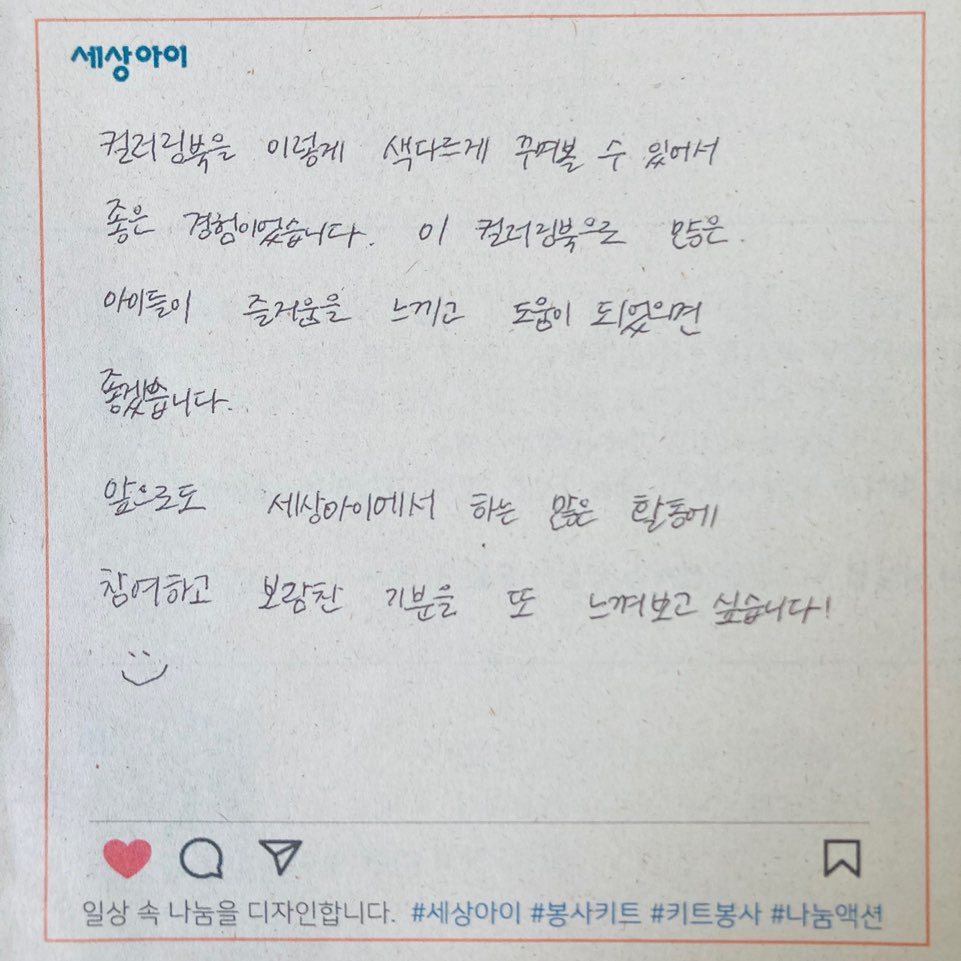 세상아이
컬러링북을 이렇게 색다르게 꾸며볼 수 있어서
좋은 경험이었습니다. 이 컬러링북으로 많은
아이들이 즐거움을 느끼고 도움이 되었으면
좋겠습니다.
앞으로도 세상아이에서 하는 많은 활동에
참여하고 보람찬 기분을 또 느껴보고 싶습니다!
일상 속 나눔을 디자인합니다. #세상아이 #봉사키트 #키트봉사 #나눔액션